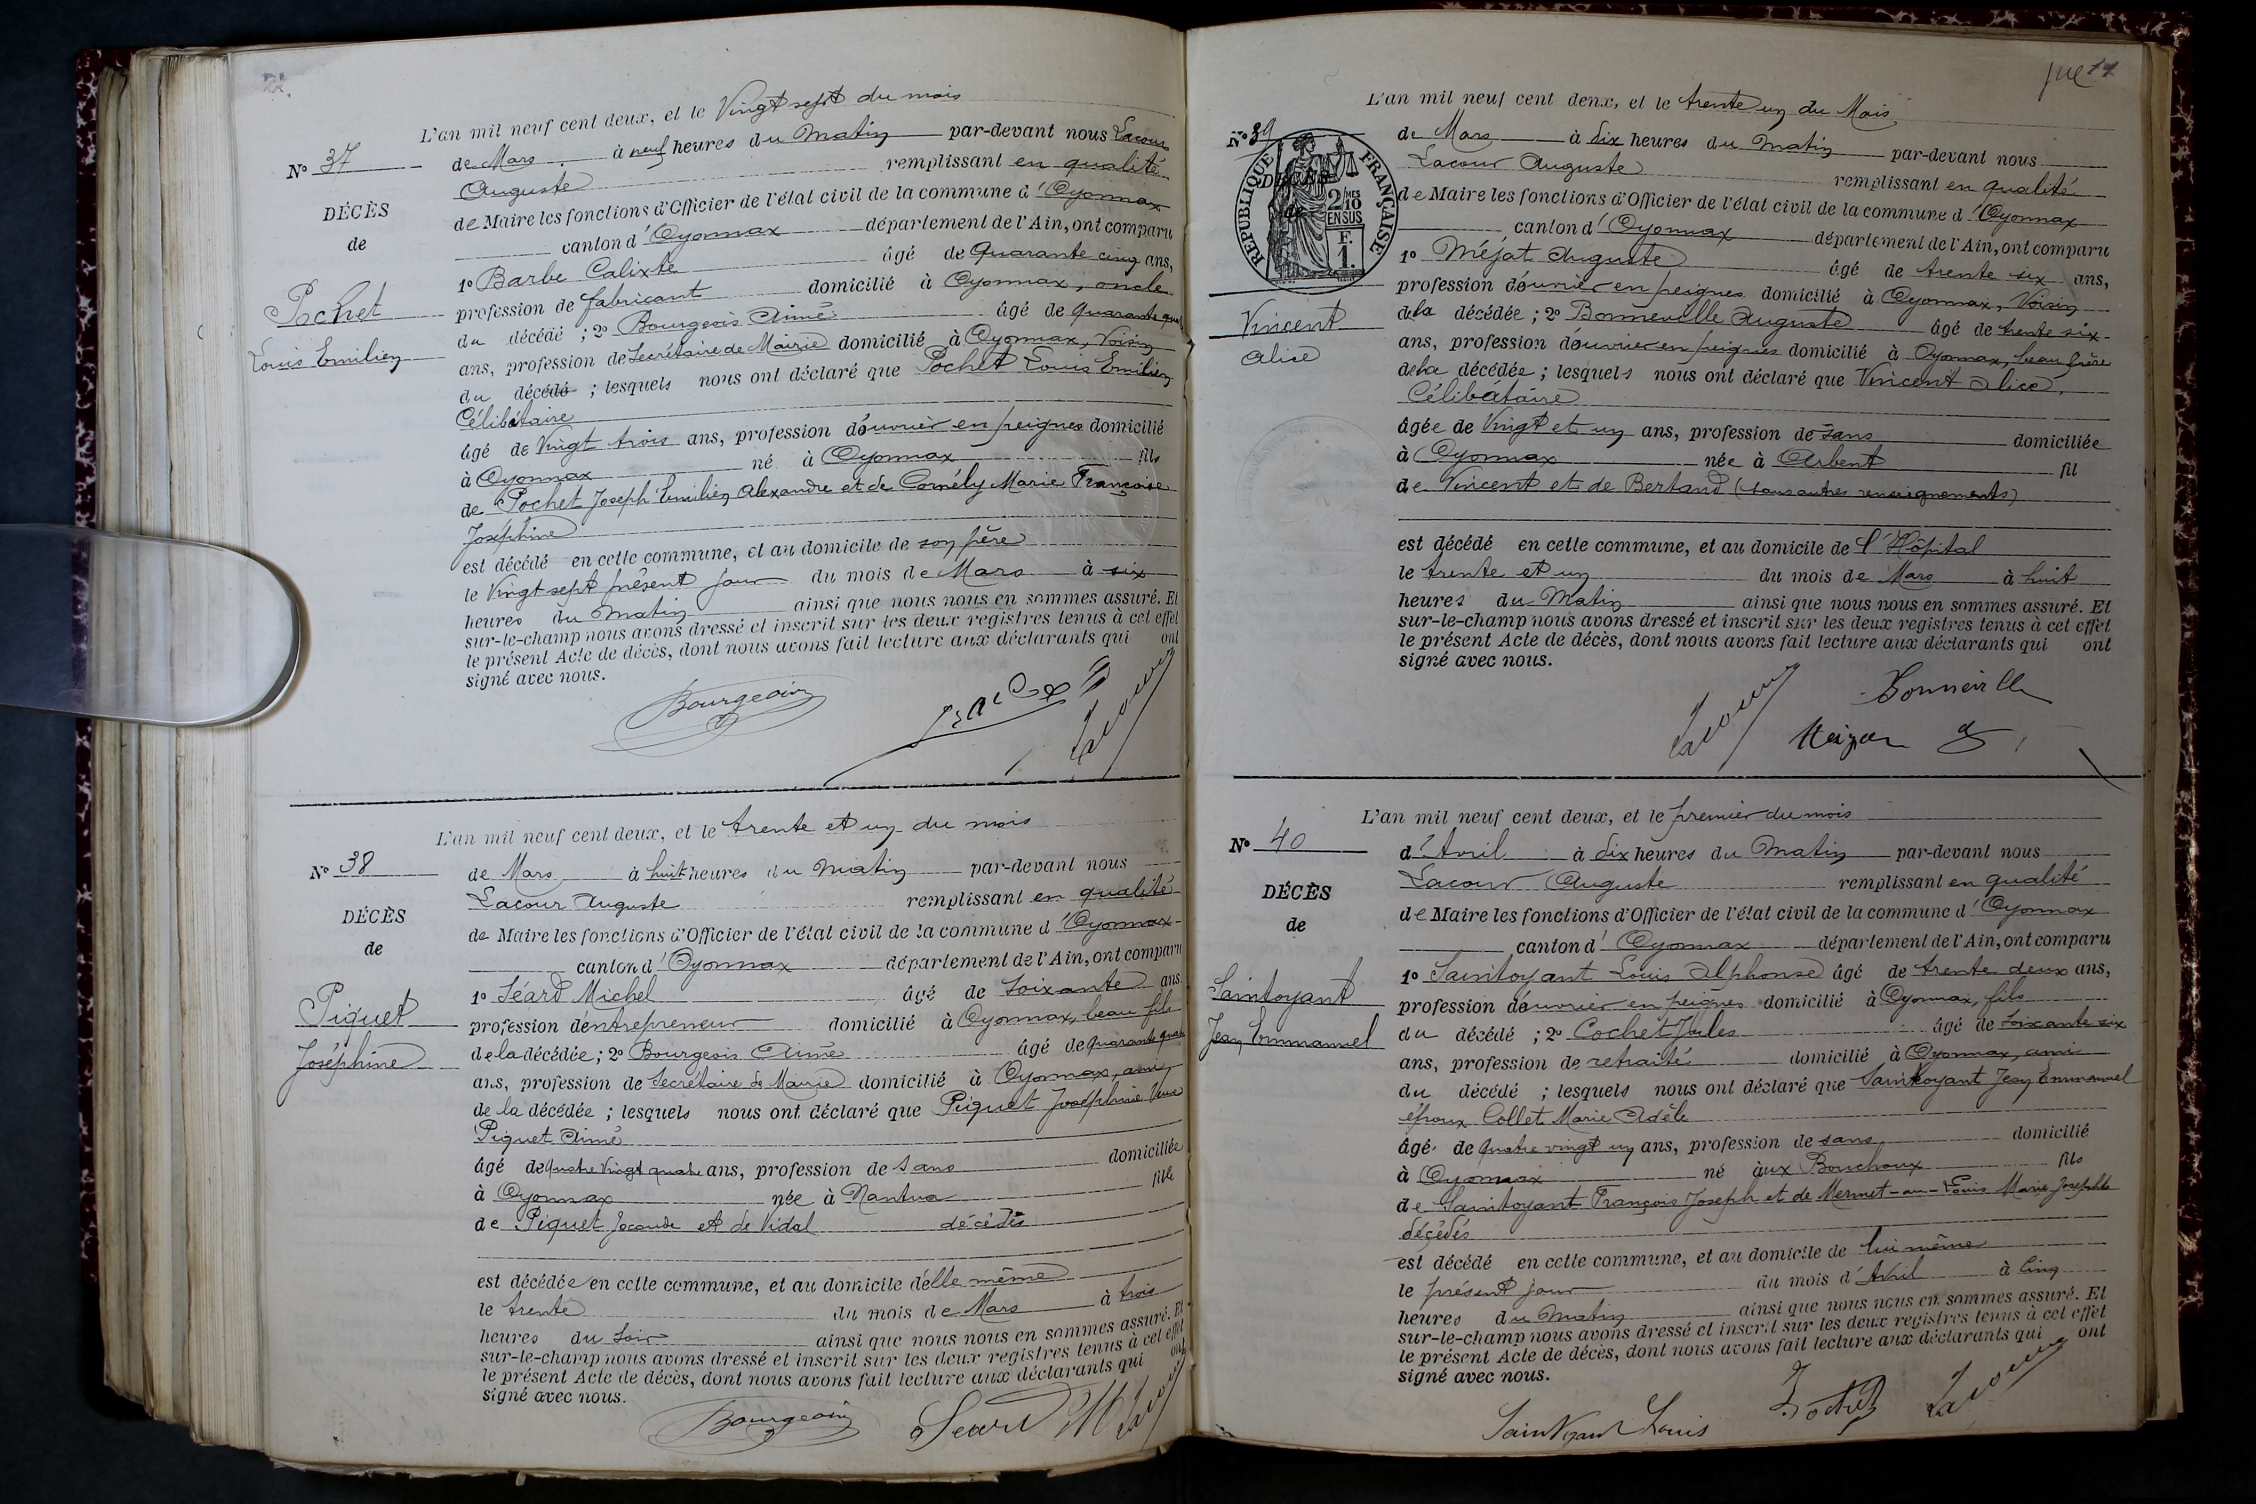 L'an mil neuf cent deux, et le Vingt sept du mois
N° 37
de Mars à neuf heures du Matin par-devant nous Lacour
Auguste remplissant en qualité
DÉCÈS
de
de Maire les fonctions d'Officier de l'état civil de la commune d'Oyonnax
canton d'Oyonnax département de l'Ain, ont comparu
1° Barbe Calixte âgé de Quarante cinq ans,
Pochet
Louis Emilien
profession de fabricant domicilié à Oyonnax, oncle
du décédé ; 2° Bourgeois Aimé âgé de quarante
ans, profession de Secrétaire de Mairie domicilié à Oyonnax, Voisin
du décédé ; lesquels nous ont déclaré que Pochet Louis Emilien
Célibétaire
âgé de Vingt trois ans, profession d'ouvrier en peignes domicilié
à Oyonnax né à Oyonnax fils
de Pochet Joseph Emilien Alexandre et de Comély Marie Françoise
Joséphine
est décédé en cette commune, et au domicile de son père
le Vingt sept présent jour du mois de Mars à six
heures du Matin ainsi que nous nous en sommes assuré. Et
sur-le-champ nous avons dressé et inscrit sur les deux registres tenus à cet effet
le présent Acte de décès, dont nous avons fait lecture aux déclarants qui ont
signé avec nous.
Bourgeois Lacour
L'an mil neuf cent deux, et le trente et un du mois
N° 38
de Mars à huit heures du Matin par-devant nous
Lacour Auguste remplissant en qualité
DÉCÈS
de
de Maire les fonctions d'Officier de l'état civil de la commune d'Oyonnax
canton d'Oyonnax département de l'Ain, ont comparu
1° Séard Michel âgé de Soixante ans
Piquet
Joséphine
profession d'entrepreneur domicilié à Oyonnax, beau fils
de la décédée ; 2° Bourgeois Aimé âgé de quarante quatre
ans, profession de Secrétaire de Mairie domicilié à Oyonnax, ami
de la décédée ; lesquels nous ont déclaré que Piquet Joséphine Veuve
Piquet Aimé
âgé de quatre Vingt quatre ans, profession de Sans domiciliée
à Oyonnax née à Nantua fille
de Piquet Joconde et de Vidal décédés
est décédée en cette commune, et au domicile d'elle même
le trente du mois de Mars à trois
heures du Soir ainsi que nous nous en sommes assuré. Et
sur-le-champ nous avons dressé et inscrit sur les deux registres tenus à cet effet
le présent Acte de décès, dont nous avons fait lecture aux déclarants qui ont
signé avec nous.
Bourgeois Seard M Lacour
L'an mil neuf cent deux, et le trente un du Mois
N° 39
RÉPUBLIQUE FRANÇAISE
2/10 MES
EN SUS
F.
1.
DÉCÈS
de
de Mars à dix heures du Matin par-devant nous
Lacour Auguste remplissant en qualité
de Maire les fonctions d'Officier de l'état civil de la commune d'Oyonnax
canton d'Oyonnax département de l'Ain, ont comparu
1° Méjat Auguste âgé de trente six ans,
Vincent
Alice
profession d'ouvrier en peignes domicilié à Oyonnax, Voisin
de la décédée ; 2° Bonneville Auguste âgé de trente six
ans, profession d'ouvrier en peignes domicilié à Oyonnax, beau frère
de la décédée ; lesquels nous ont déclaré que Vincent Alice,
Célibátaire
âgée de Vingt et un ans, profession de Sans domiciliée
à Oyonnax née à Arbent fil
de Vincent et de Bertand (sans autres renseignements)
est décédé en cette commune, et au domicile de l'Hôpital
le trente et un du mois de Mars à huit
heures du Matin ainsi que nous nous en sommes assuré. Et
sur-le-champ nous avons dressé et inscrit sur les deux registres tenus à cet effet
le présent Acte de décès, dont nous avons fait lecture aux déclarants qui ont
signé avec nous.
Lacour Bonneville
L'an mil neuf cent deux, et le premier du mois
N° 40
d'Avril à dix heures du Matin par-devant nous
Lacour Auguste remplissant en qualité
DÉCÈS
de
de Maire les fonctions d'Officier de l'état civil de la commune d'Oyonnax
canton d'Oyonnax département de l'Ain, ont comparu
1° Saintoyant Louis Alphonse âgé de trente deux ans,
Saintoyant
Jean Emmanuel
profession d'ouvrier en peignes domicilié à Oyonnax, fils
du décédé ; 2° Cochet Jules âgé de Soixante six
ans, profession de retraité domicilié à Oyonnax, ami
du décédé ; lesquels nous ont déclaré que Saintoyant Jean Emmanuel
époux Collet Marie Adèle
âgé de quatre vingt un ans, profession de sans domicilié
à Oyonnax né aux Bouchoux fils
de Saintoyant François Joseph et de Mermet-au-Louis Marie Josephte
décédés
est décédé en cette commune, et au domicile de lui même
le présent jour du mois d'Avril à Cinq
heures du Matin ainsi que nous nous en sommes assuré. Et
sur-le-champ nous avons dressé et inscrit sur les deux registres tenus à cet effet
le présent Acte de décès, dont nous avons fait lecture aux déclarants qui ont
signé avec nous.
Saintoyant Louis Cochet Lacour